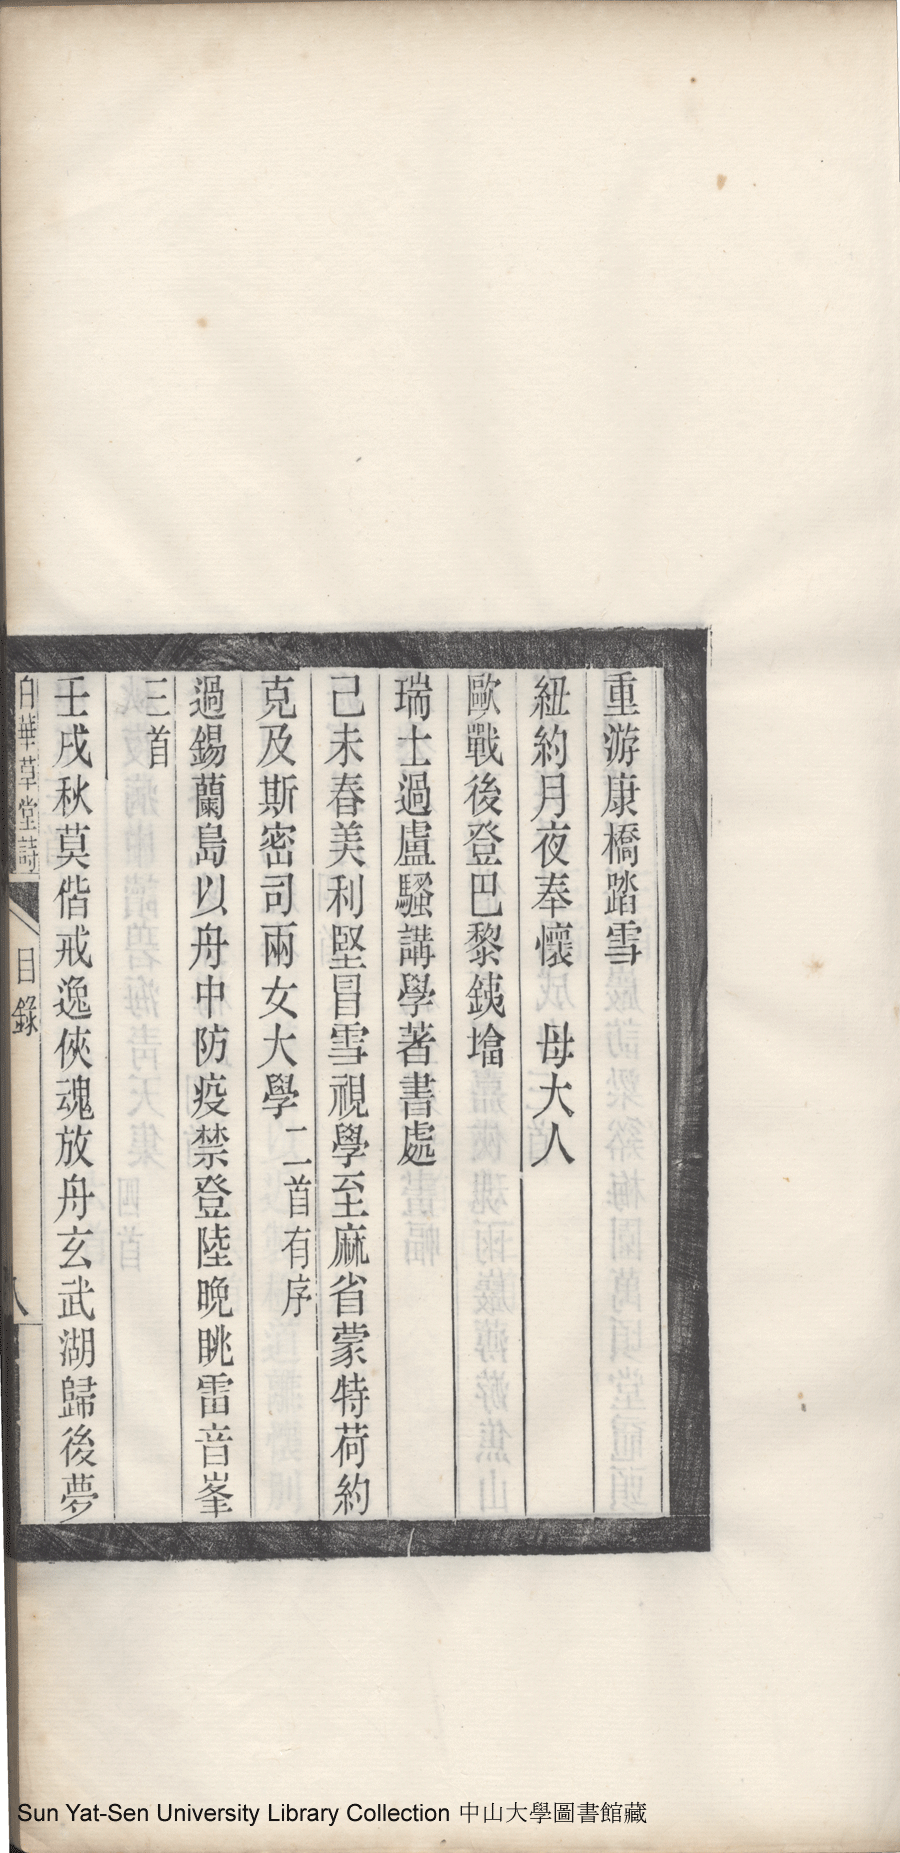 重游康橋踏雪
紐約月夜奉懷　母大人
歐戰後登巴黎鉄塔
瑞士過盧騷講學著書處
己未春美利堅冒雪視學至麻省蒙特荷約
克及斯密司兩女大學二首有序
過錫蘭島以舟中防疫禁登陸晚眺雷音峯
三首
壬戌秋莫偕戒逸俠魂放舟玄武湖歸後夢
白華草堂詩　目錄　八
Sun Yat-Sen University Library Collection 中山大學圖書館藏